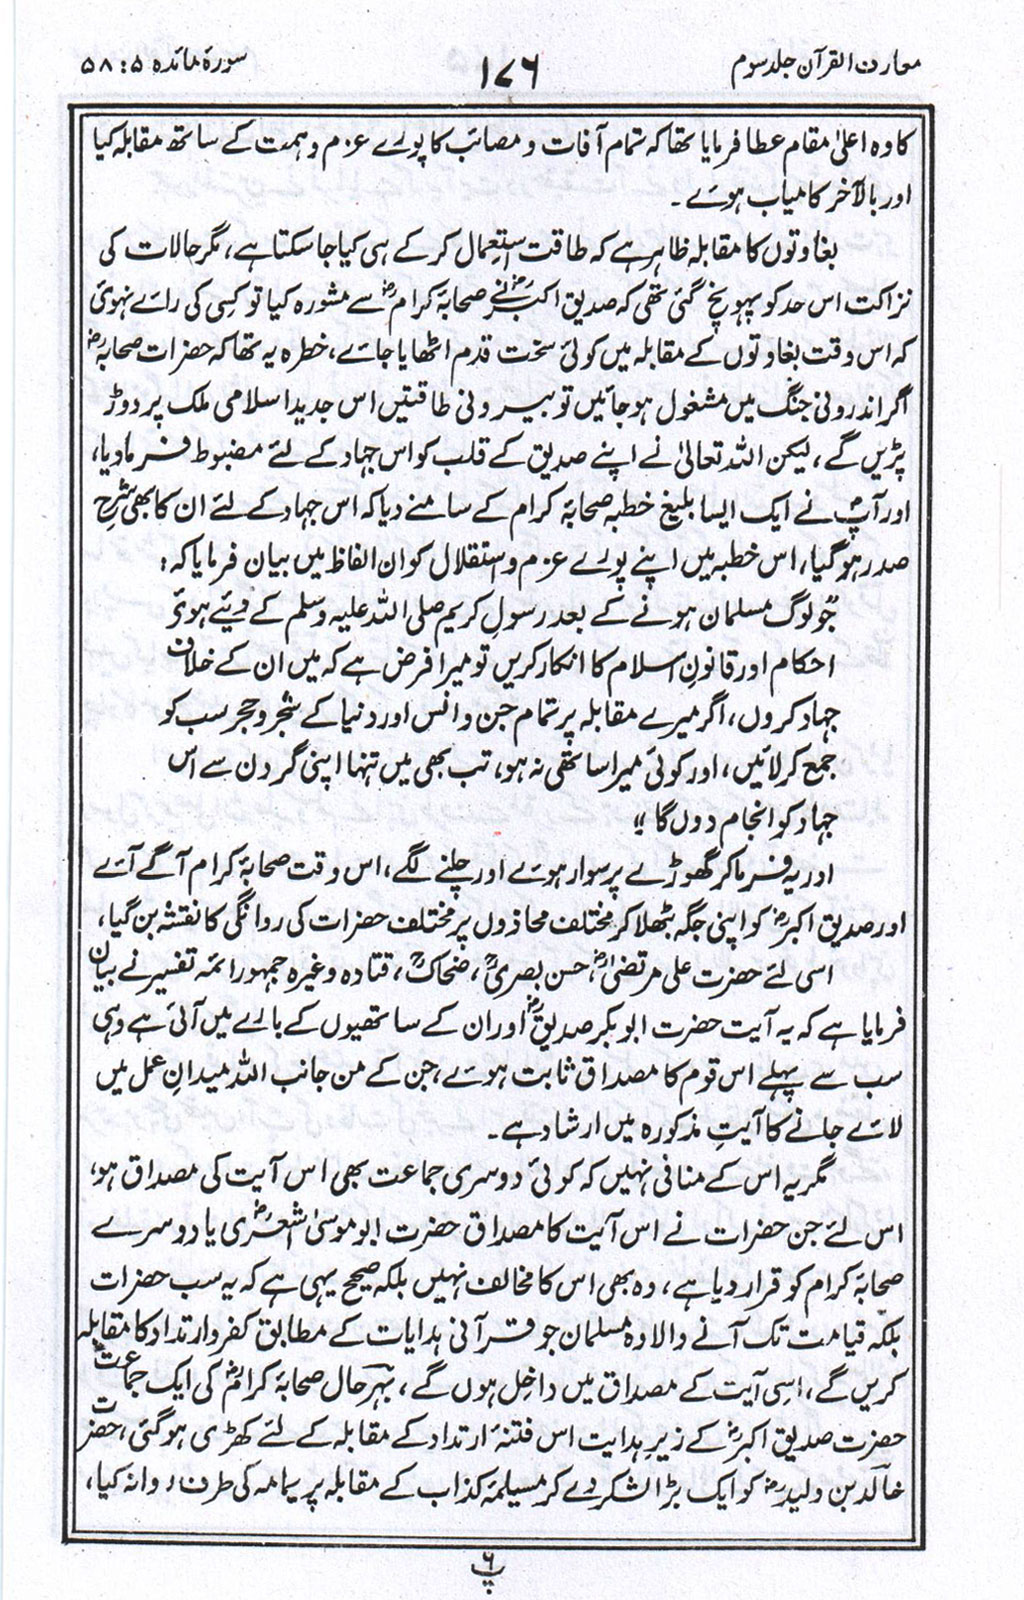 معارف القرآن جلد سوم
۱۷۶
سورۂ مائدہ ۵ : ۵۸
کا وہ اعلیٰ مقام عطا فرمایا تھا کہ تمام آفات و مصائب کا پورے عزم و ہمت کے ساتھ مقابلہ کیا
اور بالآخر کامیاب ہوئے۔
بغاوتوں کا مقابلہ ظاہر ہے کہ طاقت استعمال کرکے ہی کیا جا سکتا ہے، مگر حالات کی
نزاکت اس حد کو پہونچ گئی تھی کہ صدیق اکبرؓ نے صحابۂ کرامؓ سے مشورہ کیا تو کسی کی رائے نہوئی
کہ اس وقت بغاوتوں کے مقابلہ میں کوئی سخت قدم اٹھایا جائے، خطرہ یہ تھا کہ حضرات صحابہؓ
اگر اندرونی جنگ میں مشغول ہو جائیں تو بیرونی طاقتیں اس جدید اسلامی ملک پر دوڑ
پڑیں گے، لیکن اللہ تعالیٰ نے اپنے صدیق کے قلب کو اس جہاد کے لئے مضبوط فرما دیا،
اور آپؓ نے ایک ایسا بلیغ خطبہ صحابۂ کرام کے سامنے دیا کہ اس جہاد کے لئے ان کا بھی شرح
صدر ہو گیا، اس خطبہ میں اپنے پورے عزم و استقلال کو ان الفاظ میں بیان فرمایا کہ:
”جو لوگ مسلمان ہونے کے بعد رسولِ کریم صلی اللہ علیہ وسلم کے دیئے ہوئے
احکام اور قانونِ اسلام کا انکار کریں تو میرا فرض ہے کہ میں ان کے خلاف
جہاد کروں، اگر میرے مقابلہ پر تمام جن و انس اور دنیا کے شجر و حجر سب کو
جمع کر لائیں، اور کوئی میرا ساتھی نہ ہو، تب بھی میں تنہا اپنی گردن سے اس
جہاد کو انجام دوں گا“
اور یہ فرما کر گھوڑے پر سوار ہوئے اور چلنے لگے، اس وقت صحابۂ کرام آگے آئے
اور صدیق اکبرؓ کو اپنی جگہ بٹھلا کر مختلف محاذوں پر مختلف حضرات کی روانگی کا نقشہ بن گیا،
اسی لئے حضرت علی مرتضیٰؓ، حسن بصریؒ، ضحاکؒ، قتادہ وغیرہ جمہور ائمہ تفسیر نے بیان
فرمایا ہے کہ یہ آیت حضرت ابو بکر صدیقؓ اور ان کے ساتھیوں کے بارے میں آئی ہے وہی
سب سے پہلے اس قوم کا مصداق ثابت ہوئے، جن کے من جانب اللہ میدانِ عمل میں
لائے جانے کا آیتِ مذکورہ میں ارشاد ہے۔
مگر یہ اس کے منافی نہیں کہ کوئی دوسری جماعت بھی اس آیت کی مصداق ہو،
اس لئے جن حضرات نے اس آیت کا مصداق حضرت ابو موسیٰ اشعریؓ یا دوسرے
صحابۂ کرام کو قرار دیا ہے، وہ بھی اس کا مخالف نہیں بلکہ صحیح یہی ہے کہ یہ سب حضرات
بلکہ قیامت تک آنے والا وہ مسلمان جو قرآنی ہدایات کے مطابق کفر و ارتداد کا مقابلہ
کریں گے، اسی آیت کے مصداق میں داخل ہوں گے، بہرحال صحابۂ کرامؓ کی ایک جماعت
حضرت صدیق اکبرؓ کے زیرِ ہدایت اس فتنۂ ارتداد کے مقابلہ کے لئے کھڑی ہوگئی، حضرت
خالد بن ولیدؓ کو ایک بڑا لشکر دے کر مسیلمہ کذاب کے مقابلہ پر یمامہ کی طرف روانہ کیا،
پ ۶